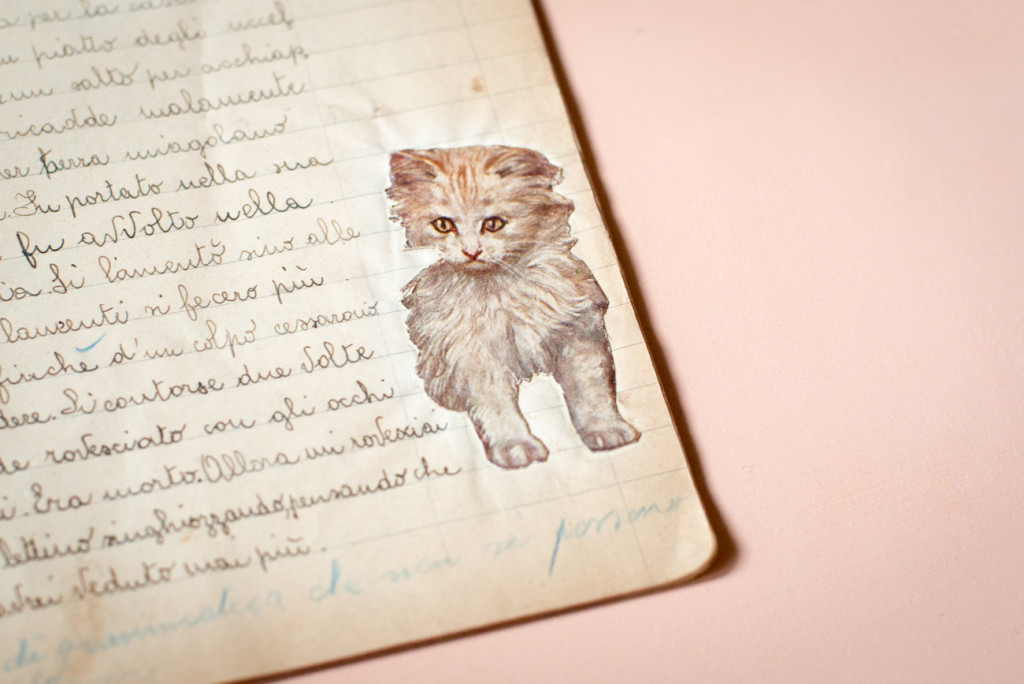 per la
piatto degli uccel
un salto per acchiap
ricadde malamente
per terra miagolano
. Fu portato nella sua
fu avvolto nella
. Si lamentò sino alle
lamenti si fecero più
finchè d'un colpo cessarono
dere. Si contorse due volte
de rovesciato con gli occhi
i. Era morto. Allora mi rovesciai
lettino singhiozzando, pensando che
avrei veduto mai più.
di grammatica che non si possono